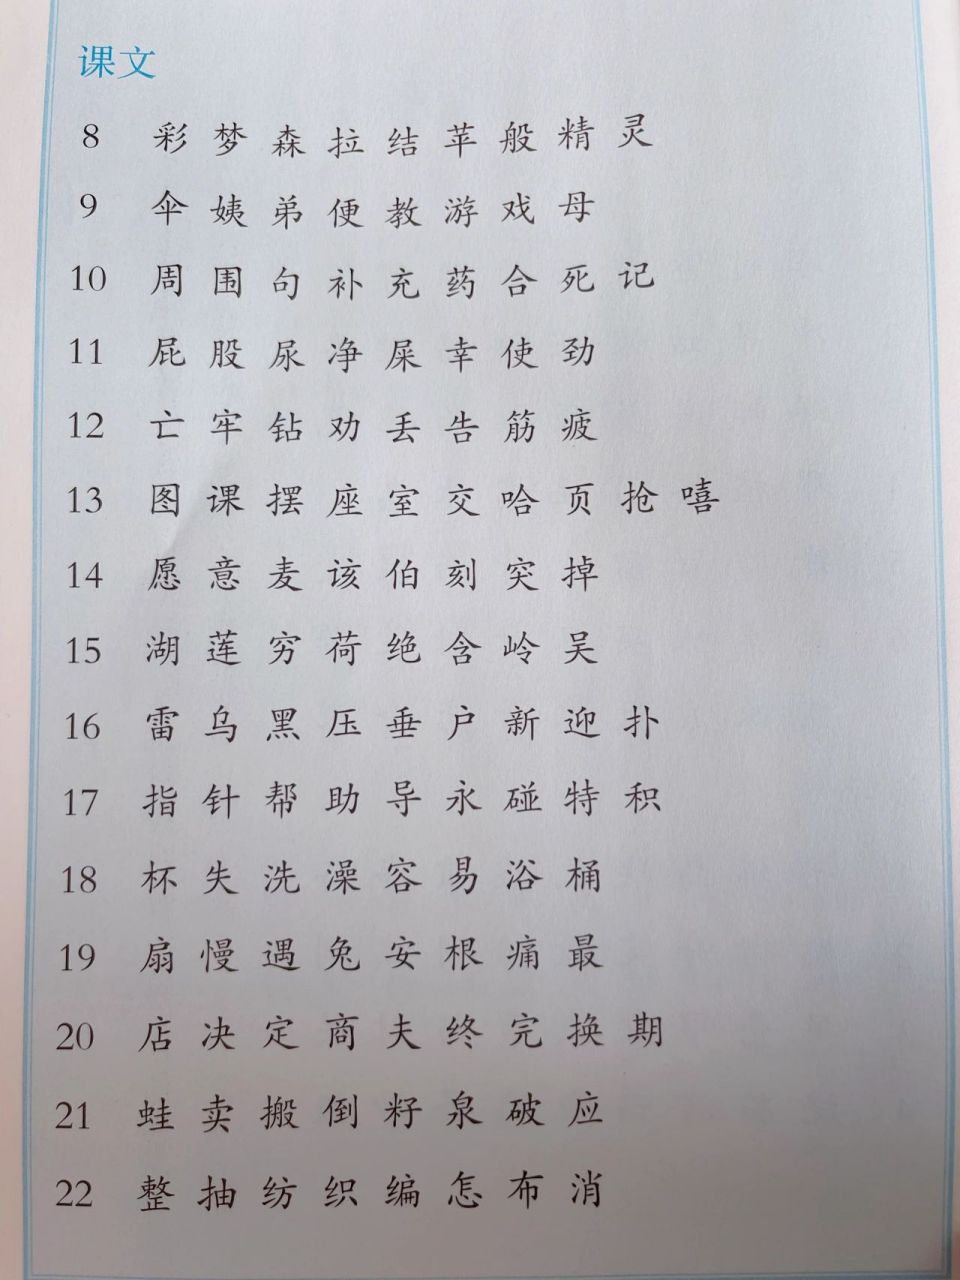 课文
8 彩 梦 森 拉 结 苹 般 精 灵
9 伞 姨 弟 便 教 游 戏 母
10 周 围 句 补 充 药 合 死 记
11 屁 股 尿 净 屎 幸 使 劲
12 亡 牢 钻 劝 丢 告 筋 疲
13 图 课 摆 座 室 交 哈 页 抢 嘻
14 愿 意 麦 该 伯 刻 突 掉
15 湖 莲 穷 荷 绝 含 岭 吴
16 雷 乌 黑 压 垂 户 新 迎 扑
17 指 针 帮 助 导 永 碰 特 积
18 杯 失 洗 澡 容 易 浴 桶
19 扇 慢 遇 兔 安 根 痛 最
20 店 决 定 商 夫 终 完 换 期
21 蛙 卖 搬 倒 籽 泉 破 应
22 整 抽 纺 织 编 怎 布 消